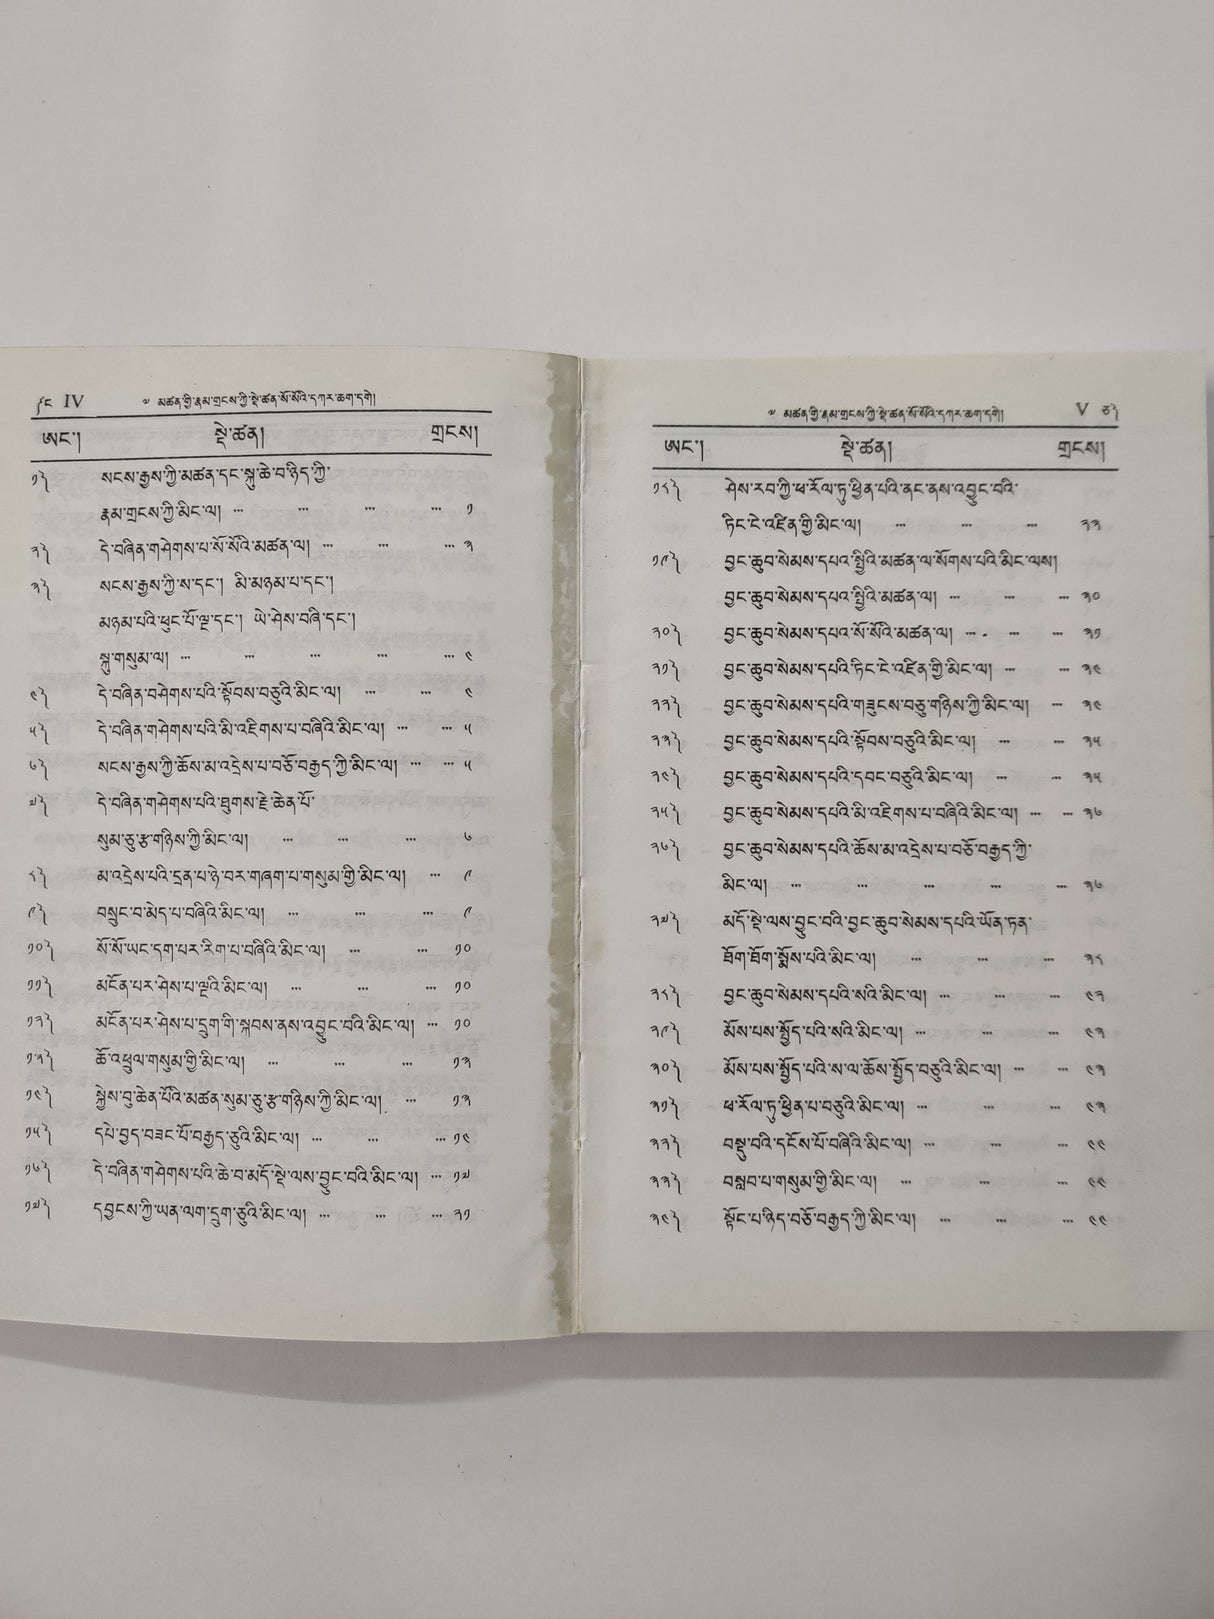 ༼ང IV ༧ མཚན་གྱི་རྣམ་གྲངས་ཀྱི་སྡེ་ཚན་སོ་སོའི་དཀར་ཆག་དགེ།
ཨང་། སྡེ་ཚན། གྲངས།
༡༽ སངས་རྒྱས་ཀྱི་མཚན་དང་སྐུ་ཆེ་བ་ཉིད་ཀྱི་
རྣམ་གྲངས་ཀྱི་མིང་ལ། ... ... ... ... ༡
༢༽ དེ་བཞིན་གཤེགས་པ་སོ་སོའི་མཚན་ལ། ... ... ... ༢
༣༽ སངས་རྒྱས་ཀྱི་ས་དང་། མི་མཉམ་པ་དང་།
མཉམ་པའི་ཕུང་པོ་ལྔ་དང་། ཡེ་ཤེས་བཞི་དང་།
སྐུ་གསུམ་ལ། ... ... ... ... ... ༤
༤༽ དེ་བཞིན་བཤེགས་པའི་སྟོབས་བཅུའི་མིང་ལ། ... ... ༤
༥༽ དེ་བཞིན་གཤེགས་པའི་མི་འཇིགས་པ་བཞིའི་མིང་ལ། ... ... ༥
༦༽ སངས་རྒྱས་ཀྱི་ཆོས་མ་འདྲེས་པ་བཅོ་བརྒྱད་ཀྱི་མིང་ལ། ... ... ༥
༧༽ དེ་བཞིན་གཤེགས་པའི་ཐུགས་རྗེ་ཆེན་པོ་
སུམ་ཅུ་རྩ་གཉིས་ཀྱི་མིང་ལ། ... ... ... ༦
༨༽ མ་འདྲེས་པའི་དྲན་པ་ཉེ་བར་གཞག་པ་གསུམ་གྱི་མིང་ལ། ... ༩
༩༽ བསྲུང་བ་མེད་པ་བཞིའི་མིང་ལ། ... ... ... ༩
༡༠༽ སོ་སོ་ཡང་དག་པར་རིག་པ་བཞིའི་མིང་ལ། ... ... ༡༠
༡༡༽ མངོན་པར་ཤེས་པ་ལྔའི་མིང་ལ། ... ... ... ༡༠
༡༢༽ མངོན་པར་ཤེས་པ་དྲུག་གི་སྐབས་ནས་འབྱུང་བའི་མིང་ལ། ... ༡༠
༡༣༽ ཆོ་འཕྲུལ་གསུམ་གྱི་མིང་ལ། ... ... ... ༡༢
༡༤༽ སྐྱེས་བུ་ཆེན་པོའི་མཚན་སུམ་ཅུ་རྩ་གཉིས་ཀྱི་མིང་ལ། ... ༡༢
༡༥༽ དཔེ་བྱད་བཟང་པོ་བརྒྱད་ཅུའི་མིང་ལ། ... ... ... ༡༤
༡༦༽ དེ་བཞིན་གཤེགས་པའི་ཆེ་བ་མདོ་སྡེ་ལས་བྱུང་བའི་མིང་ལ། ... ༡༧
༡༧༽ དབྱངས་ཀྱི་ཡན་ལག་དྲུག་ཅུའི་མིང་ལ། ... ... ... ༢༡
༧ མཚན་གྱི་རྣམ་གྲངས་ཀྱི་སྡེ་ཚན་སོ་སོའི་དཀར་ཆག་དགེ། V ཅ༽
ཨང་། སྡེ་ཚན། གྲངས།
༡༨༽ ཤེས་རབ་ཀྱི་ཕ་རོལ་ཏུ་ཕྱིན་པའི་ནང་ནས་འབྱུང་བའི་
ཏིང་ངེ་འཛིན་གྱི་མིང་ལ། ... ... ... ༢༣
༡༩༽ བྱང་ཆུབ་སེམས་དཔའ་སྤྱིའི་མཚན་ལ་སོགས་པའི་མིང་ལས།
བྱང་ཆུབ་སེམས་དཔའ་སྤྱིའི་མཚན་ལ། ... ... ... ༣༠
༢༠༽ བྱང་ཆུབ་སེམས་དཔའ་སོ་སོའི་མཚན་ལ། ... ... ... ༣༡
༢༡༽ བྱང་ཆུབ་སེམས་དཔའི་ཏིང་ངེ་འཛིན་གྱི་མིང་ལ། ... ... ༣༤
༢༢༽ བྱང་ཆུབ་སེམས་དཔའི་གཟུངས་བཅུ་གཉིས་ཀྱི་མིང་ལ། ... ༣༤
༢༣༽ བྱང་ཆུབ་སེམས་དཔའི་སྟོབས་བཅུའི་མིང་ལ། ... ... ༣༥
༢༤༽ བྱང་ཆུབ་སེམས་དཔའི་དབང་བཅུའི་མིང་ལ། ... ... ༣༥
༢༥༽ བྱང་ཆུབ་སེམས་དཔའི་མི་འཇིགས་པ་བཞིའི་མིང་ལ། ... ... ༣༦
༢༦༽ བྱང་ཆུབ་སེམས་དཔའི་ཆོས་མ་འདྲེས་པ་བཅོ་བརྒྱད་ཀྱི་
མིང་ལ། ... ... ... ... ... ༣༦
༢༧༽ མདོ་སྡེ་ལས་བྱུང་བའི་བྱང་ཆུབ་སེམས་དཔའི་ཡོན་ཏན་
ཐོག་ཐོག་སྨོས་པའི་མིང་ལ། ... ... ... ༣༨
༢༨༽ བྱང་ཆུབ་སེམས་དཔའི་སའི་མིང་ལ། ... ... ... ༤༢
༢༩༽ མོས་པས་སྤྱོད་པའི་སའི་མིང་ལ། ... ... ... ༤༢
༣༠༽ མོས་པས་སྤྱོད་པའི་ས་ལ་ཆོས་སྤྱོད་བཅུའི་མིང་ལ། ... ... ༤༣
༣༡༽ ཕ་རོལ་ཏུ་ཕྱིན་པ་བཅུའི་མིང་ལ། ... ... ... ༤༣
༣༢༽ བསྡུ་བའི་དངོས་པོ་བཞིའི་མིང་ལ། ... ... ... ༤༤
༣༣༽ བསླབ་པ་གསུམ་གྱི་མིང་ལ། ... ... ... ༤༤
༣༤༽ སྟོང་པ་ཉིད་བཅོ་བརྒྱད་ཀྱི་མིང་ལ། ... ... ... ༤༤